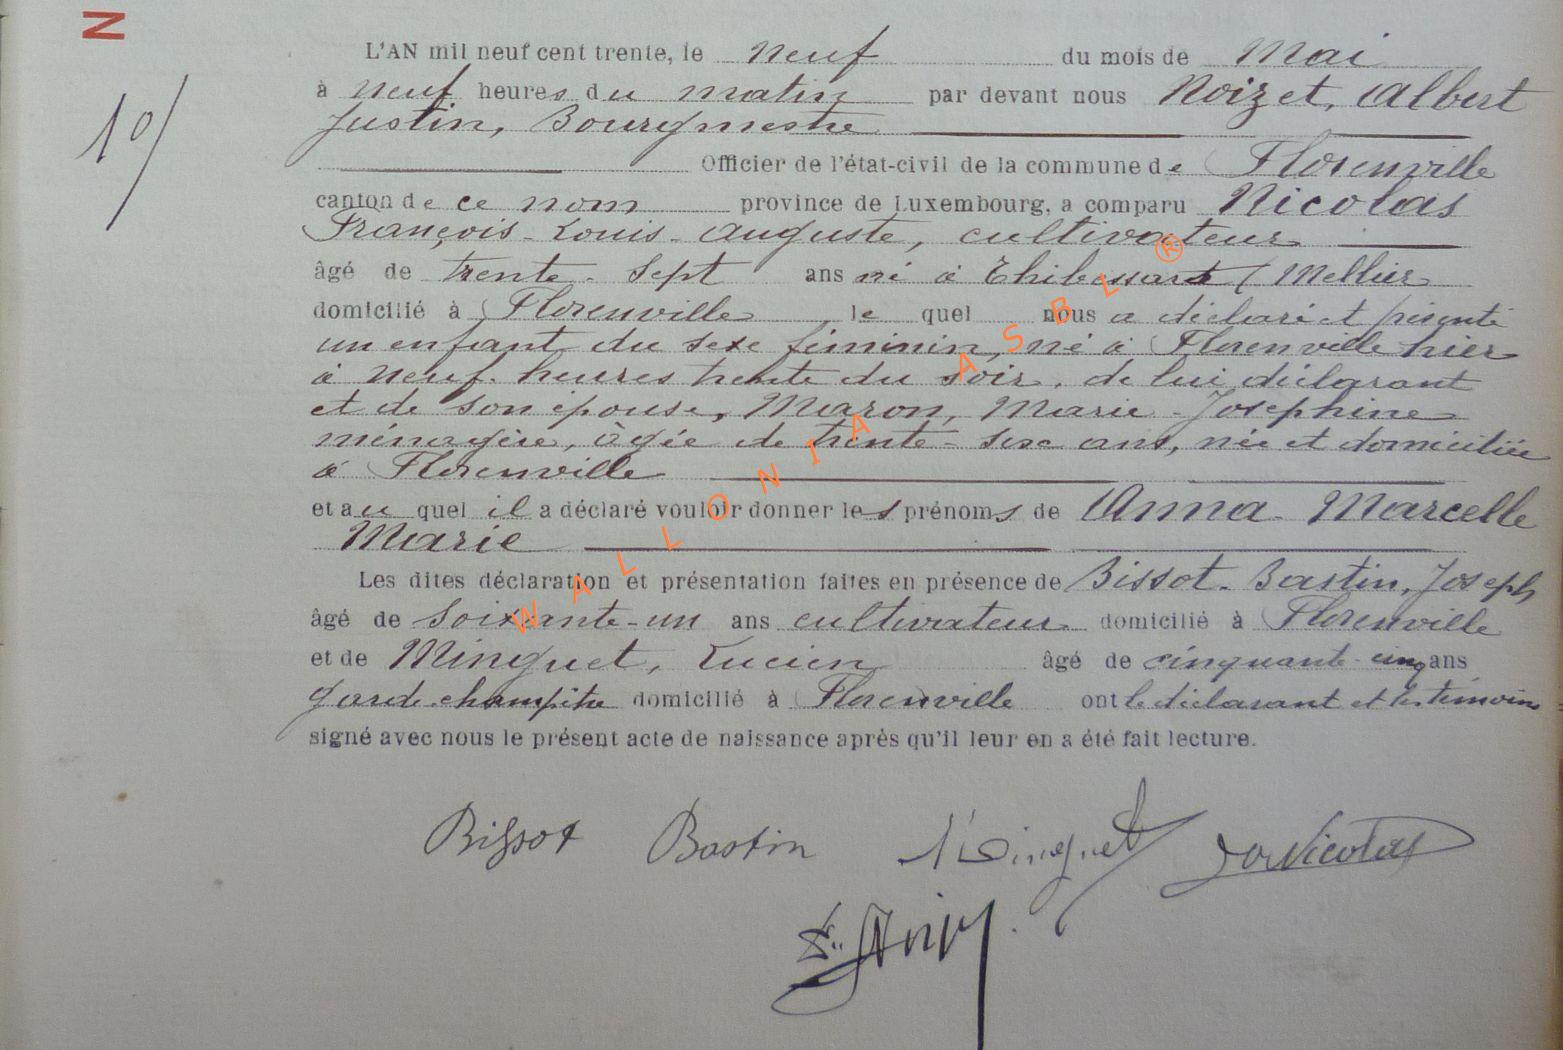 N
10/
L'AN mil neuf cent trente, le neuf du mois de Mai
à neuf heures du matin par devant nous Noizet, Albert
Justin, Bourgmestre
Officier de l'état-civil de la commune de Florenville
canton de ce nom province de Luxembourg, a comparu Nicolas
François-Louis-Auguste, cultivateur
âgé de trente-sept ans né à Thibessart (Mellier
domicilié à Florenville le quel nous a déclaré et présenté
un enfant du sexe féminin, né à Florenville hier
à neuf heures trente du soir, de lui déclarant
et de son épouse, Maron, Marie-Josephine
ménagère, âgée de trente-six ans, née et domiciliée
à Florenville
et au quel il a déclaré vouloir donner les prénoms de Anna Marcelle
Marie
Les dites déclaration et présentation faites en présence de Bissot-Bastin, Joseph
âgé de soixante-un ans cultivateur domicilié à Florenville
et de Minguet, Lucien âgé de cinquante-cinq ans
garde-champêtre domicilié à Florenville ont le déclarant et les témoins
signé avec nous le présent acte de naissance après qu'il leur en a été fait lecture.
Bissot Bastin Minguet Nicolas
WALLONIA ASBL ®